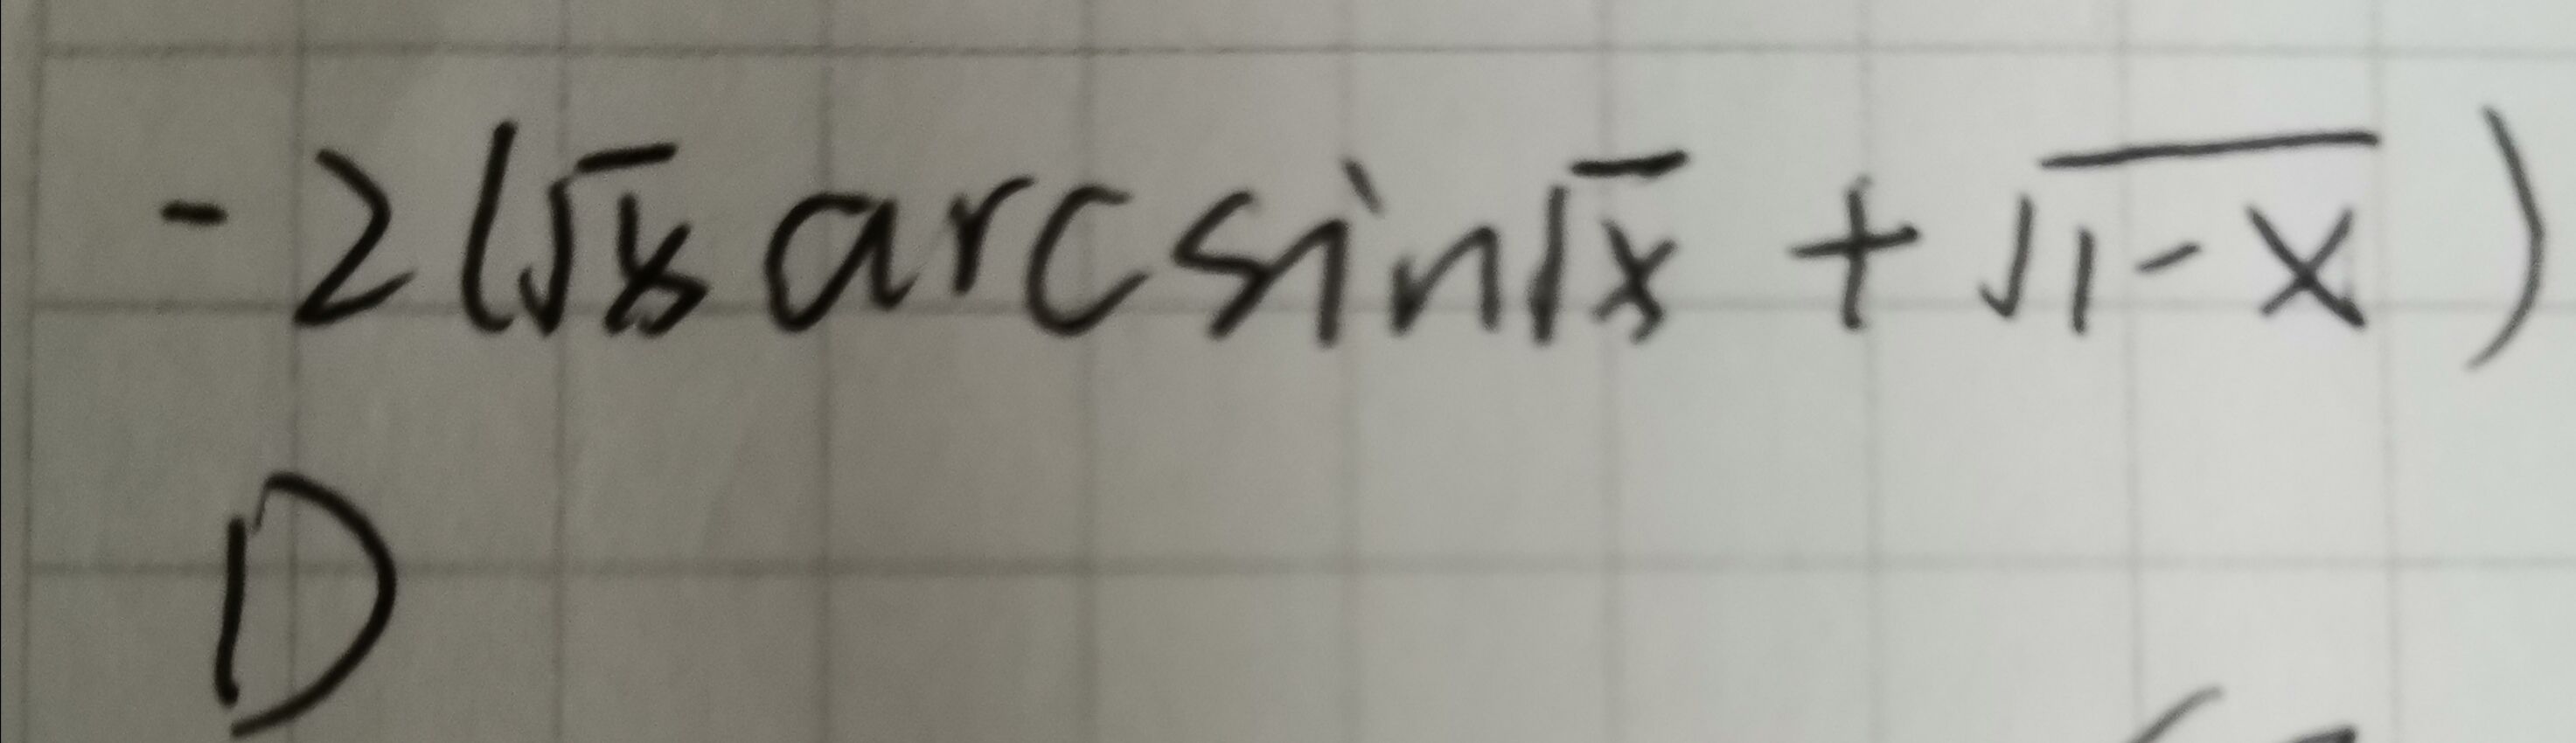 -2(√x arcsin√x + √1-x)
D